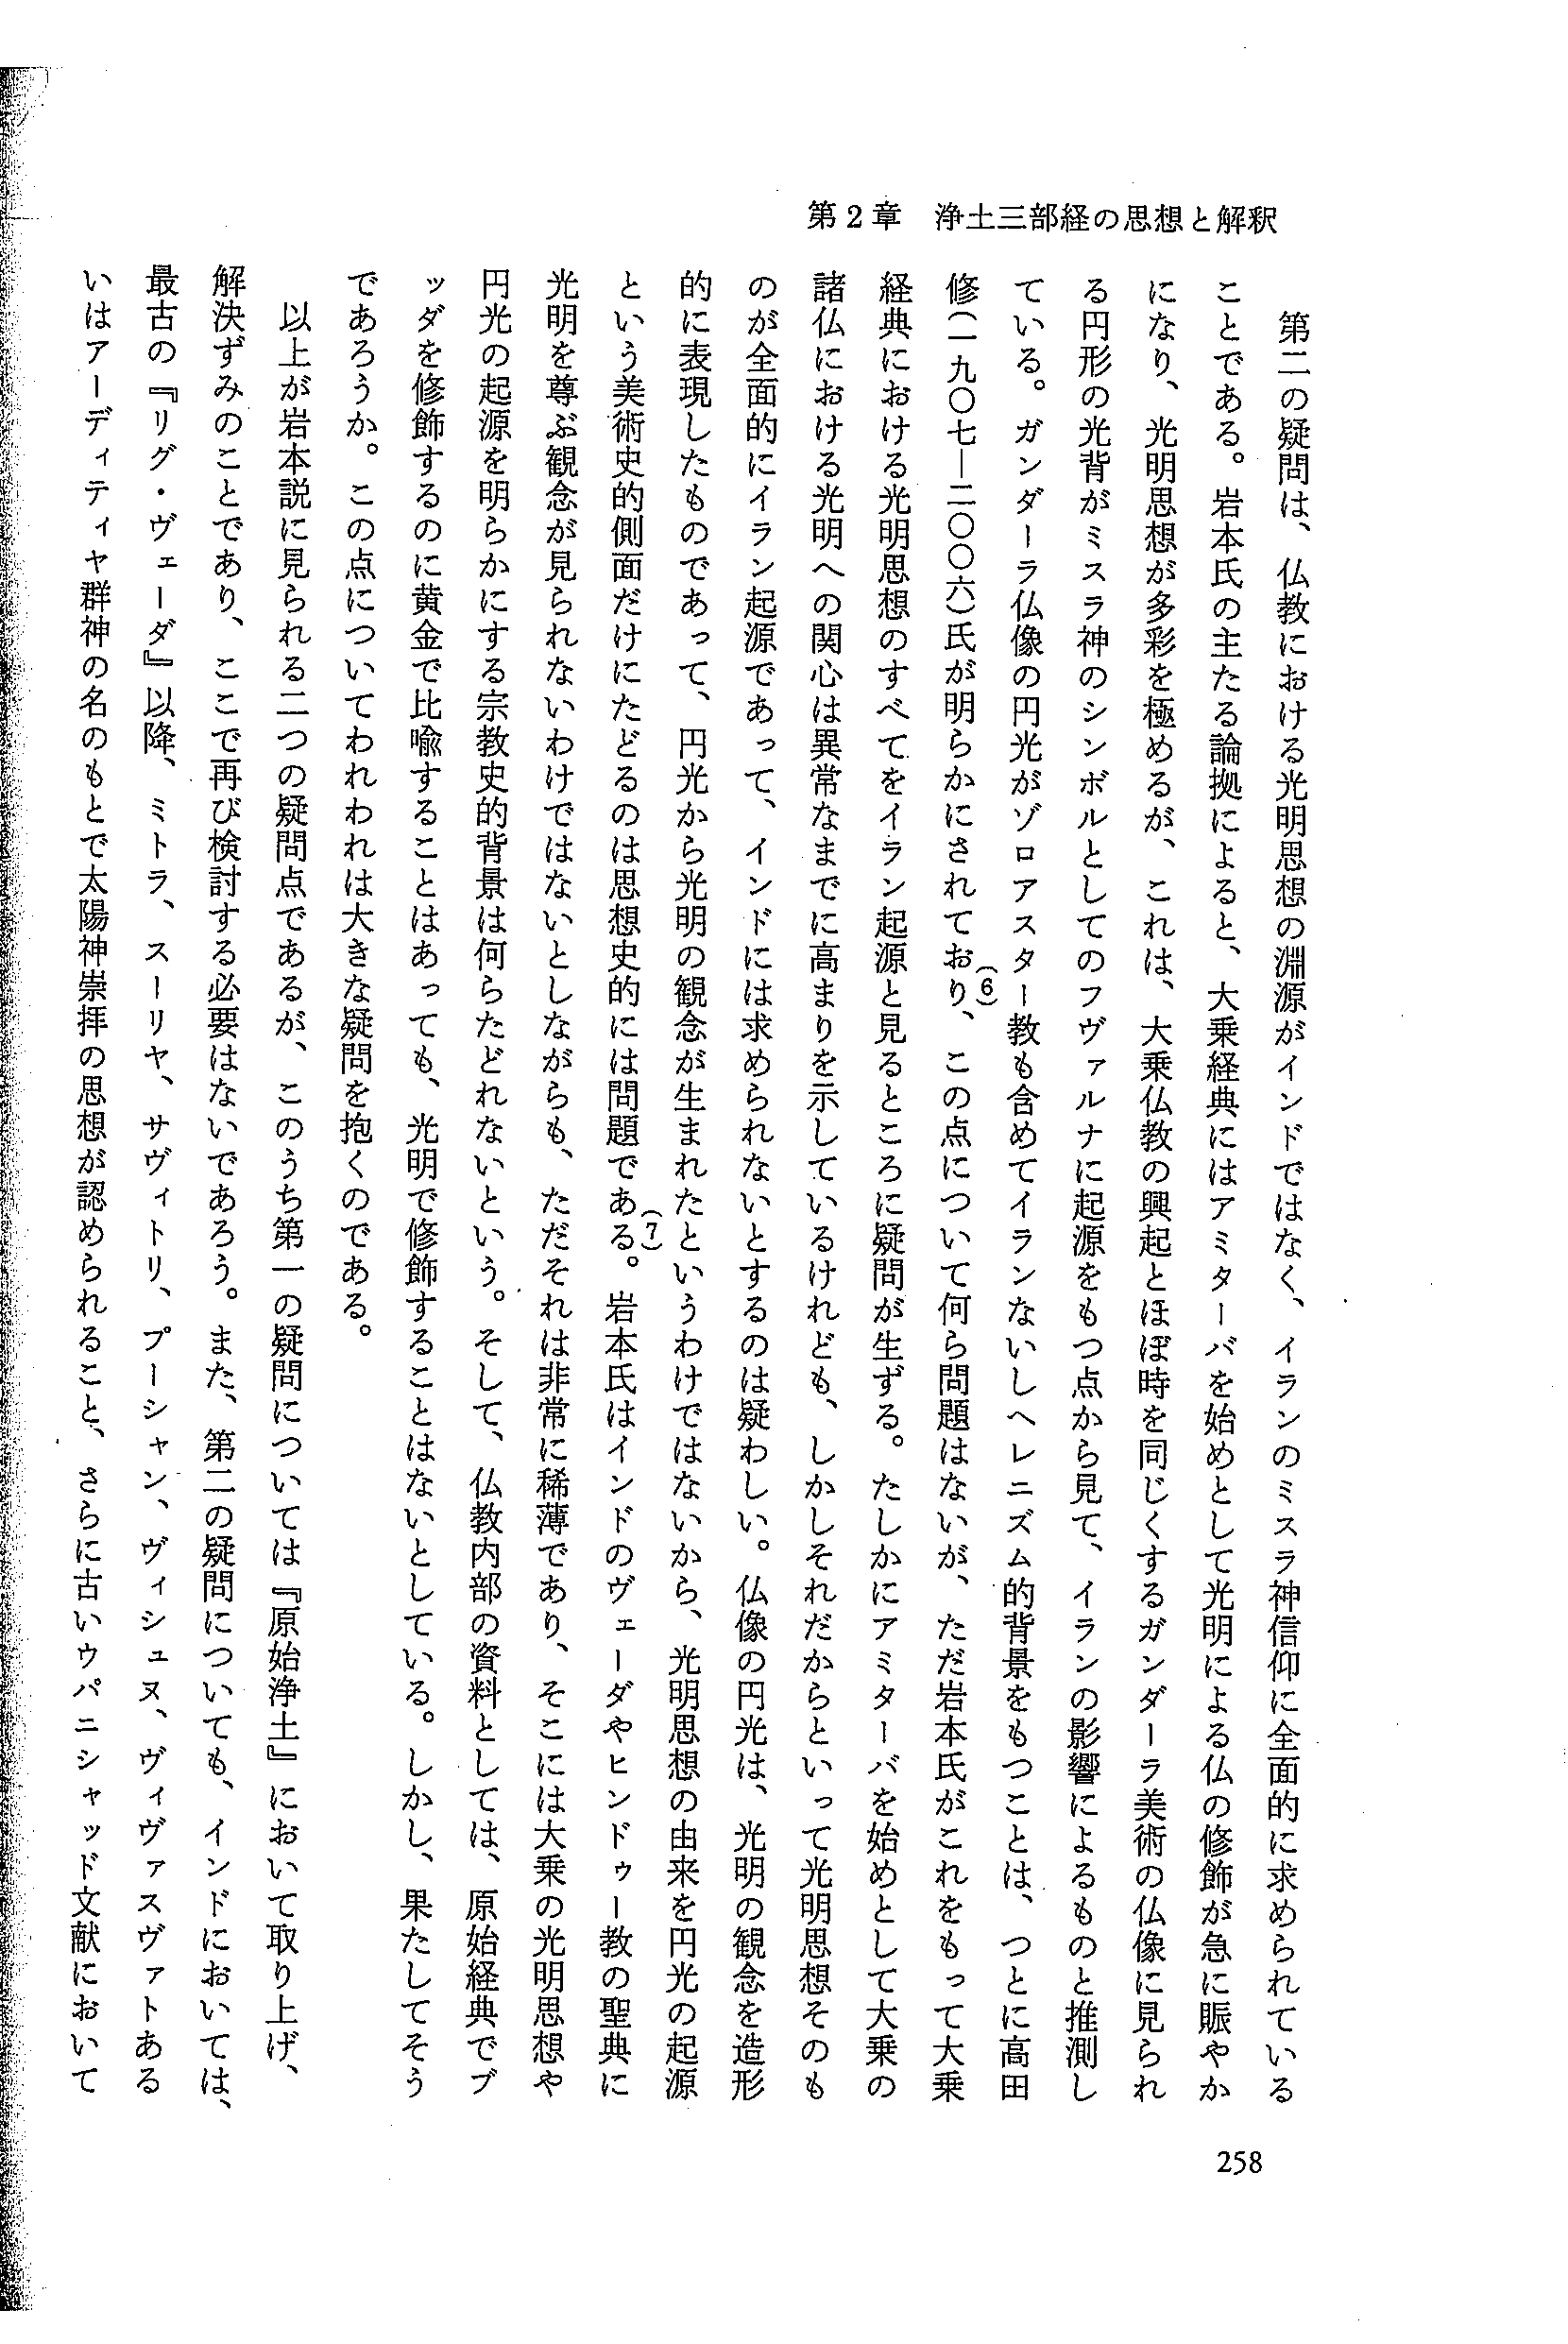 第2章　浄土三部経の思想と解釈
　第二の疑問は、仏教における光明思想の淵源がインドではなく、イランのミスラ神信仰に全面的に求められている
ことである。岩本氏の主たる論拠によると、大乗経典にはアミターバを始めとして光明による仏の修飾が急に賑やか
になり、光明思想が多彩を極めるが、これは、大乗仏教の興起とほぼ時を同じくするガンダーラ美術の仏像に見られ
る円形の光背がミスラ神のシンボルとしてのフヴァルナに起源をもつ点から見て、イランの影響によるものと推測し
ている。ガンダーラ仏像の円光がゾロアスター教も含めてイランないしヘレニズム的背景をもつことは、つとに高田
修（一九〇七―二〇〇六）氏が明らかにされており、(6)この点について何ら問題はないが、ただ岩本氏がこれをもって大乗
経典における光明思想のすべてをイラン起源と見るところに疑問が生ずる。たしかにアミターバを始めとして大乗の
諸仏における光明への関心は異常なまでに高まりを示しているけれども、しかしそれだからといって光明思想そのも
のが全面的にイラン起源であって、インドには求められないとするのは疑わしい。仏像の円光は、光明の観念を造形
的に表現したものであって、円光から光明の観念が生まれたというわけではないから、光明思想の由来を円光の起源
という美術史的側面だけにたどるのは思想史的には問題である。(7)岩本氏はインドのヴェーダやヒンドゥー教の聖典に
光明を尊ぶ観念が見られないわけではないとしながらも、ただそれは非常に稀薄であり、そこには大乗の光明思想や
円光の起源を明らかにする宗教史的背景は何らたどれないという。そして、仏教内部の資料としては、原始経典でブ
ッダを修飾するのに黄金で比喩することはあっても、光明で修飾することはないとしている。しかし、果たしてそう
であろうか。この点についてわれわれは大きな疑問を抱くのである。
　以上が岩本説に見られる二つの疑問点であるが、このうち第一の疑問については『原始浄土』において取り上げ、
解決ずみのことであり、ここで再び検討する必要はないであろう。また、第二の疑問についても、インドにおいては、
最古の『リグ・ヴェーダ』以降、ミトラ、スーリヤ、サヴィトリ、プーシャン、ヴィシュヌ、ヴィヴァスヴァトある
いはアーディティヤ群神の名のもとで太陽神崇拝の思想が認められること、さらに古いウパニシャッド文献において
258